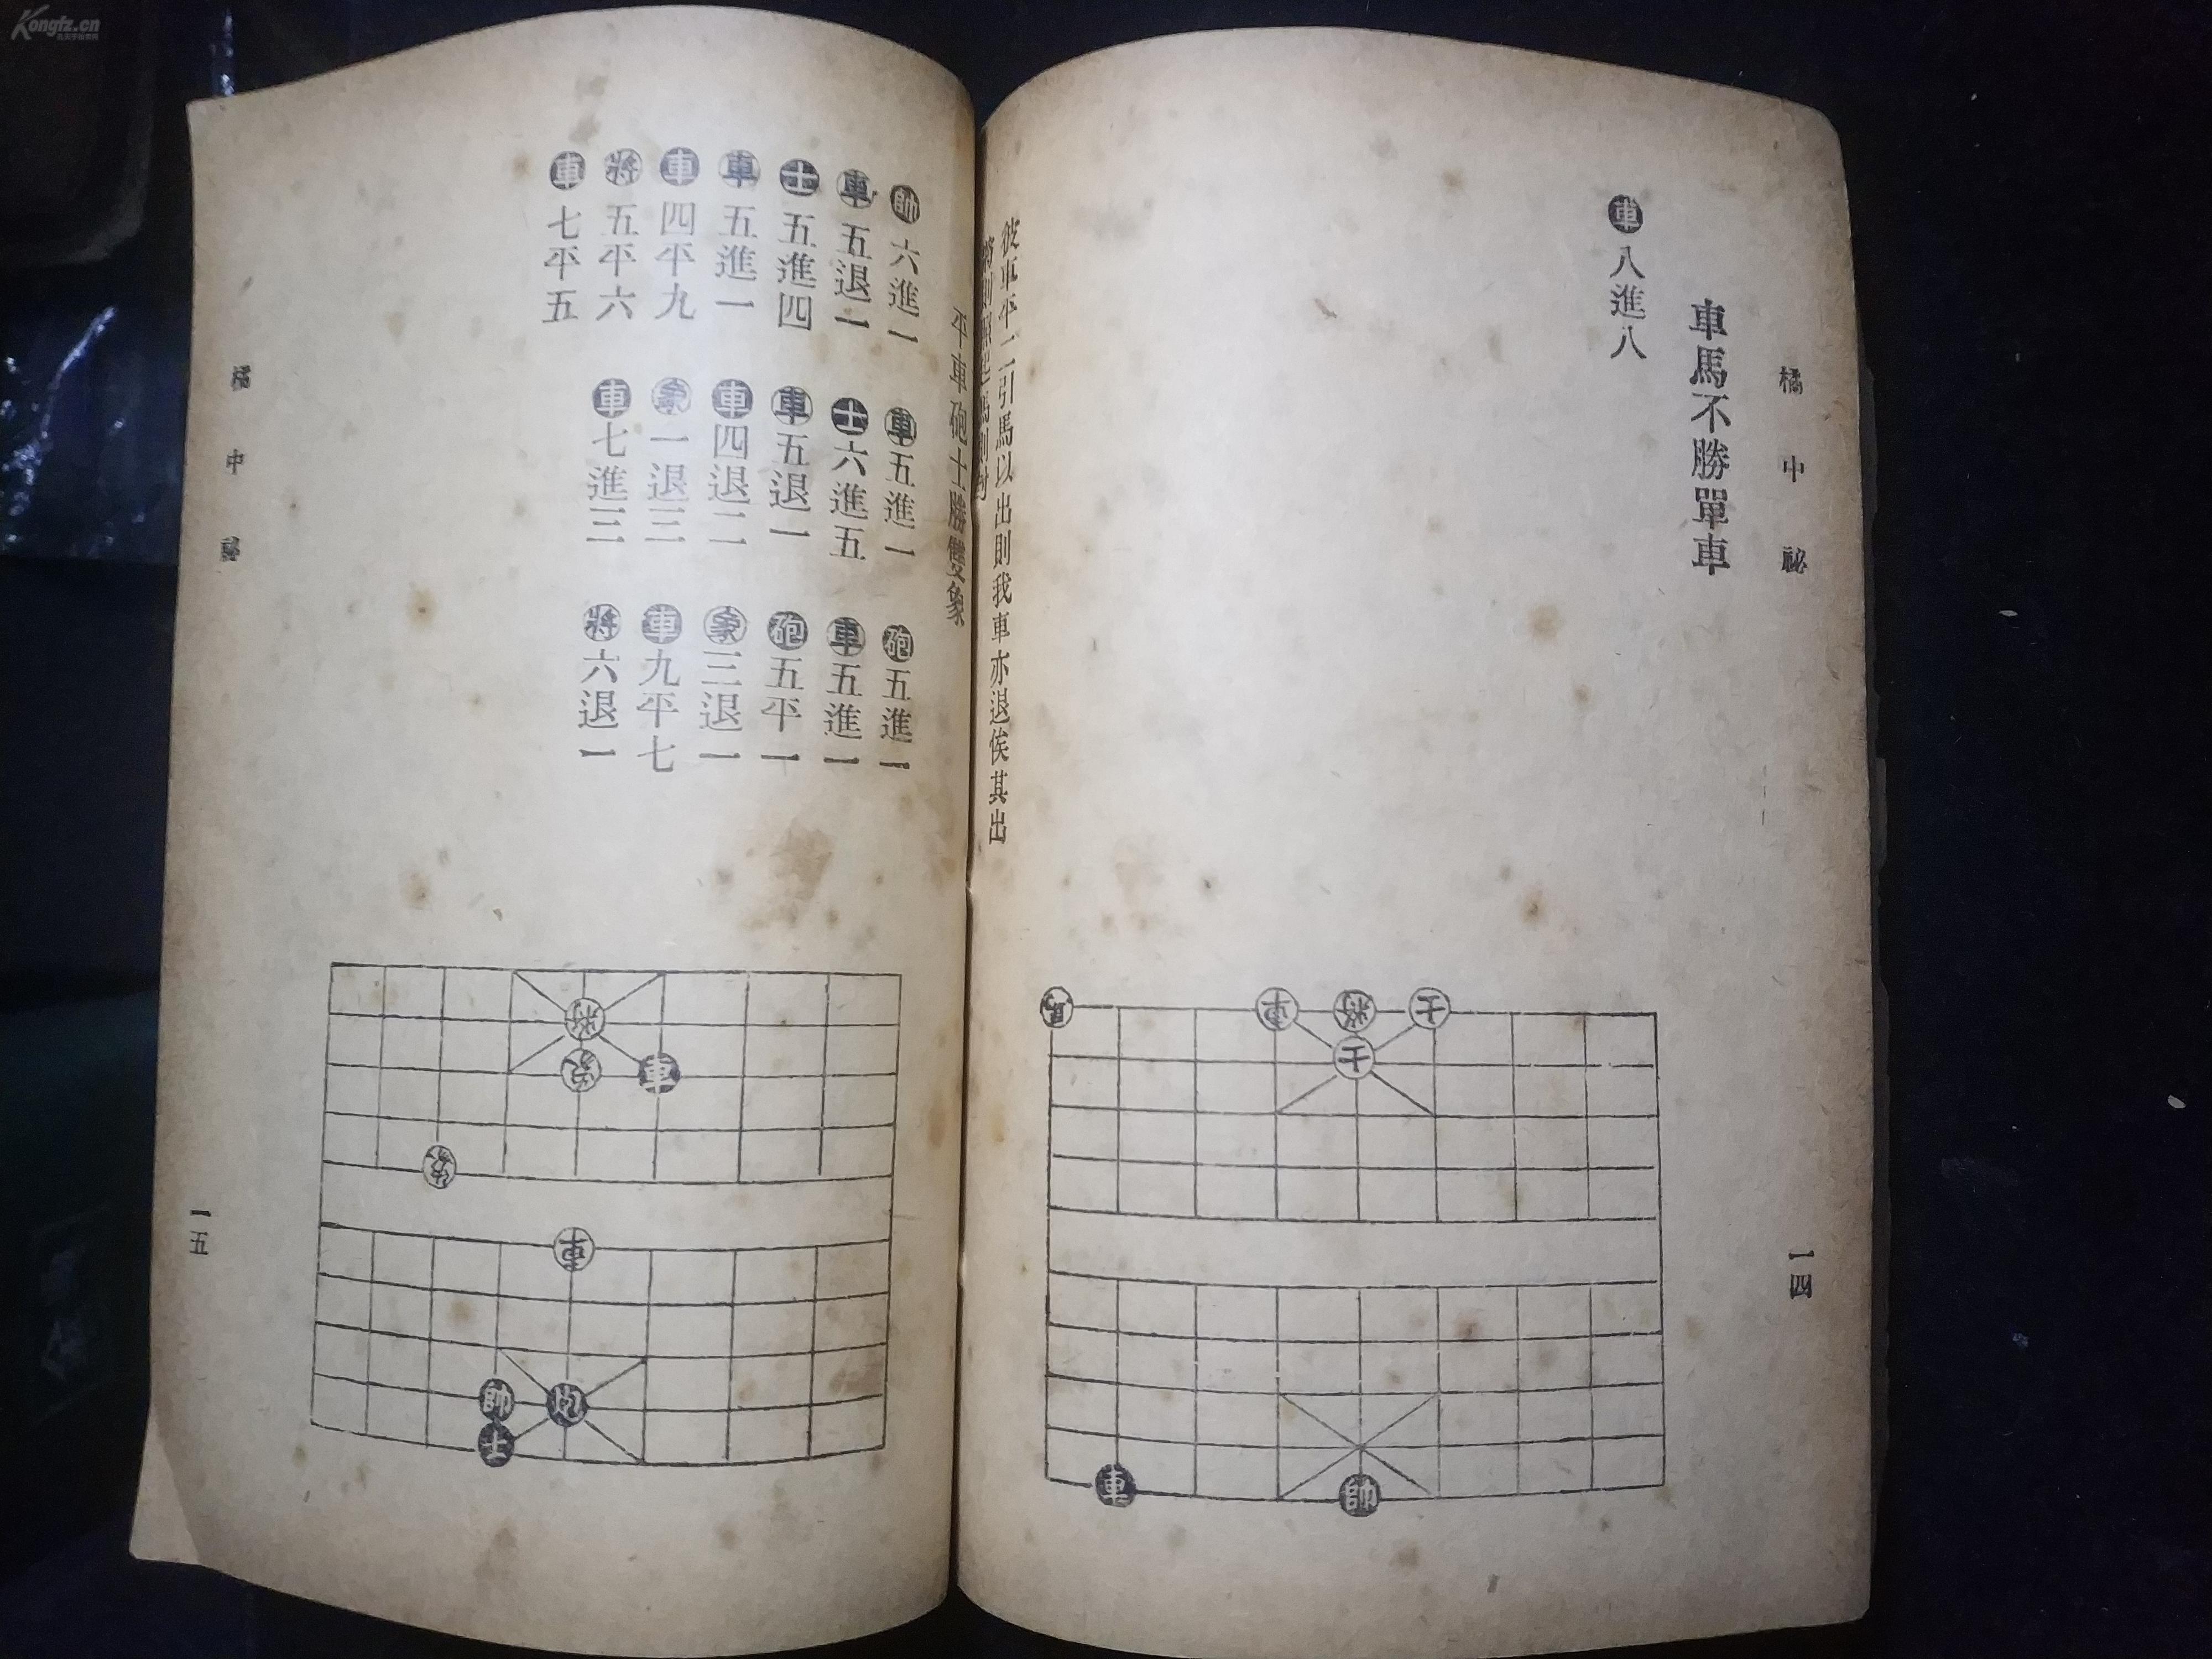 Kongfz.cn
橘中祕
一四
車馬不勝單車
車八進八
彼車平二引馬以出則我車亦退俟其出
馬 車 將 士
士
車 帥
平車砲士勝雙象
帥六進一 車五進一 砲五進一
車五退一 士六進五 車五進一
士五進四 車五退一 砲五平一
車五進一 車四退二 象三退一
車四平九 象一退三 車九平七
將五平六 車七進三 將六退一
車七平五
將
象 車
象
車
帥 炮
士
橘中祕
一五